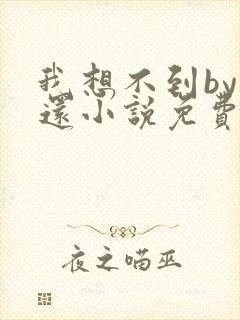 我想不到by
還小說免費
夜之喵巫